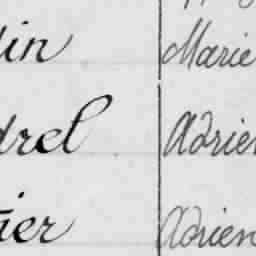 lin Marie
drel Adrien
ier Adrien